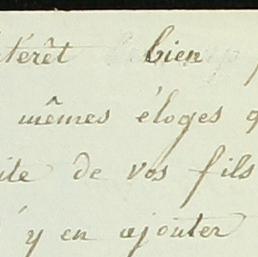 térêt bien
mêmes éloges
ite de vos fils
y en ajouter